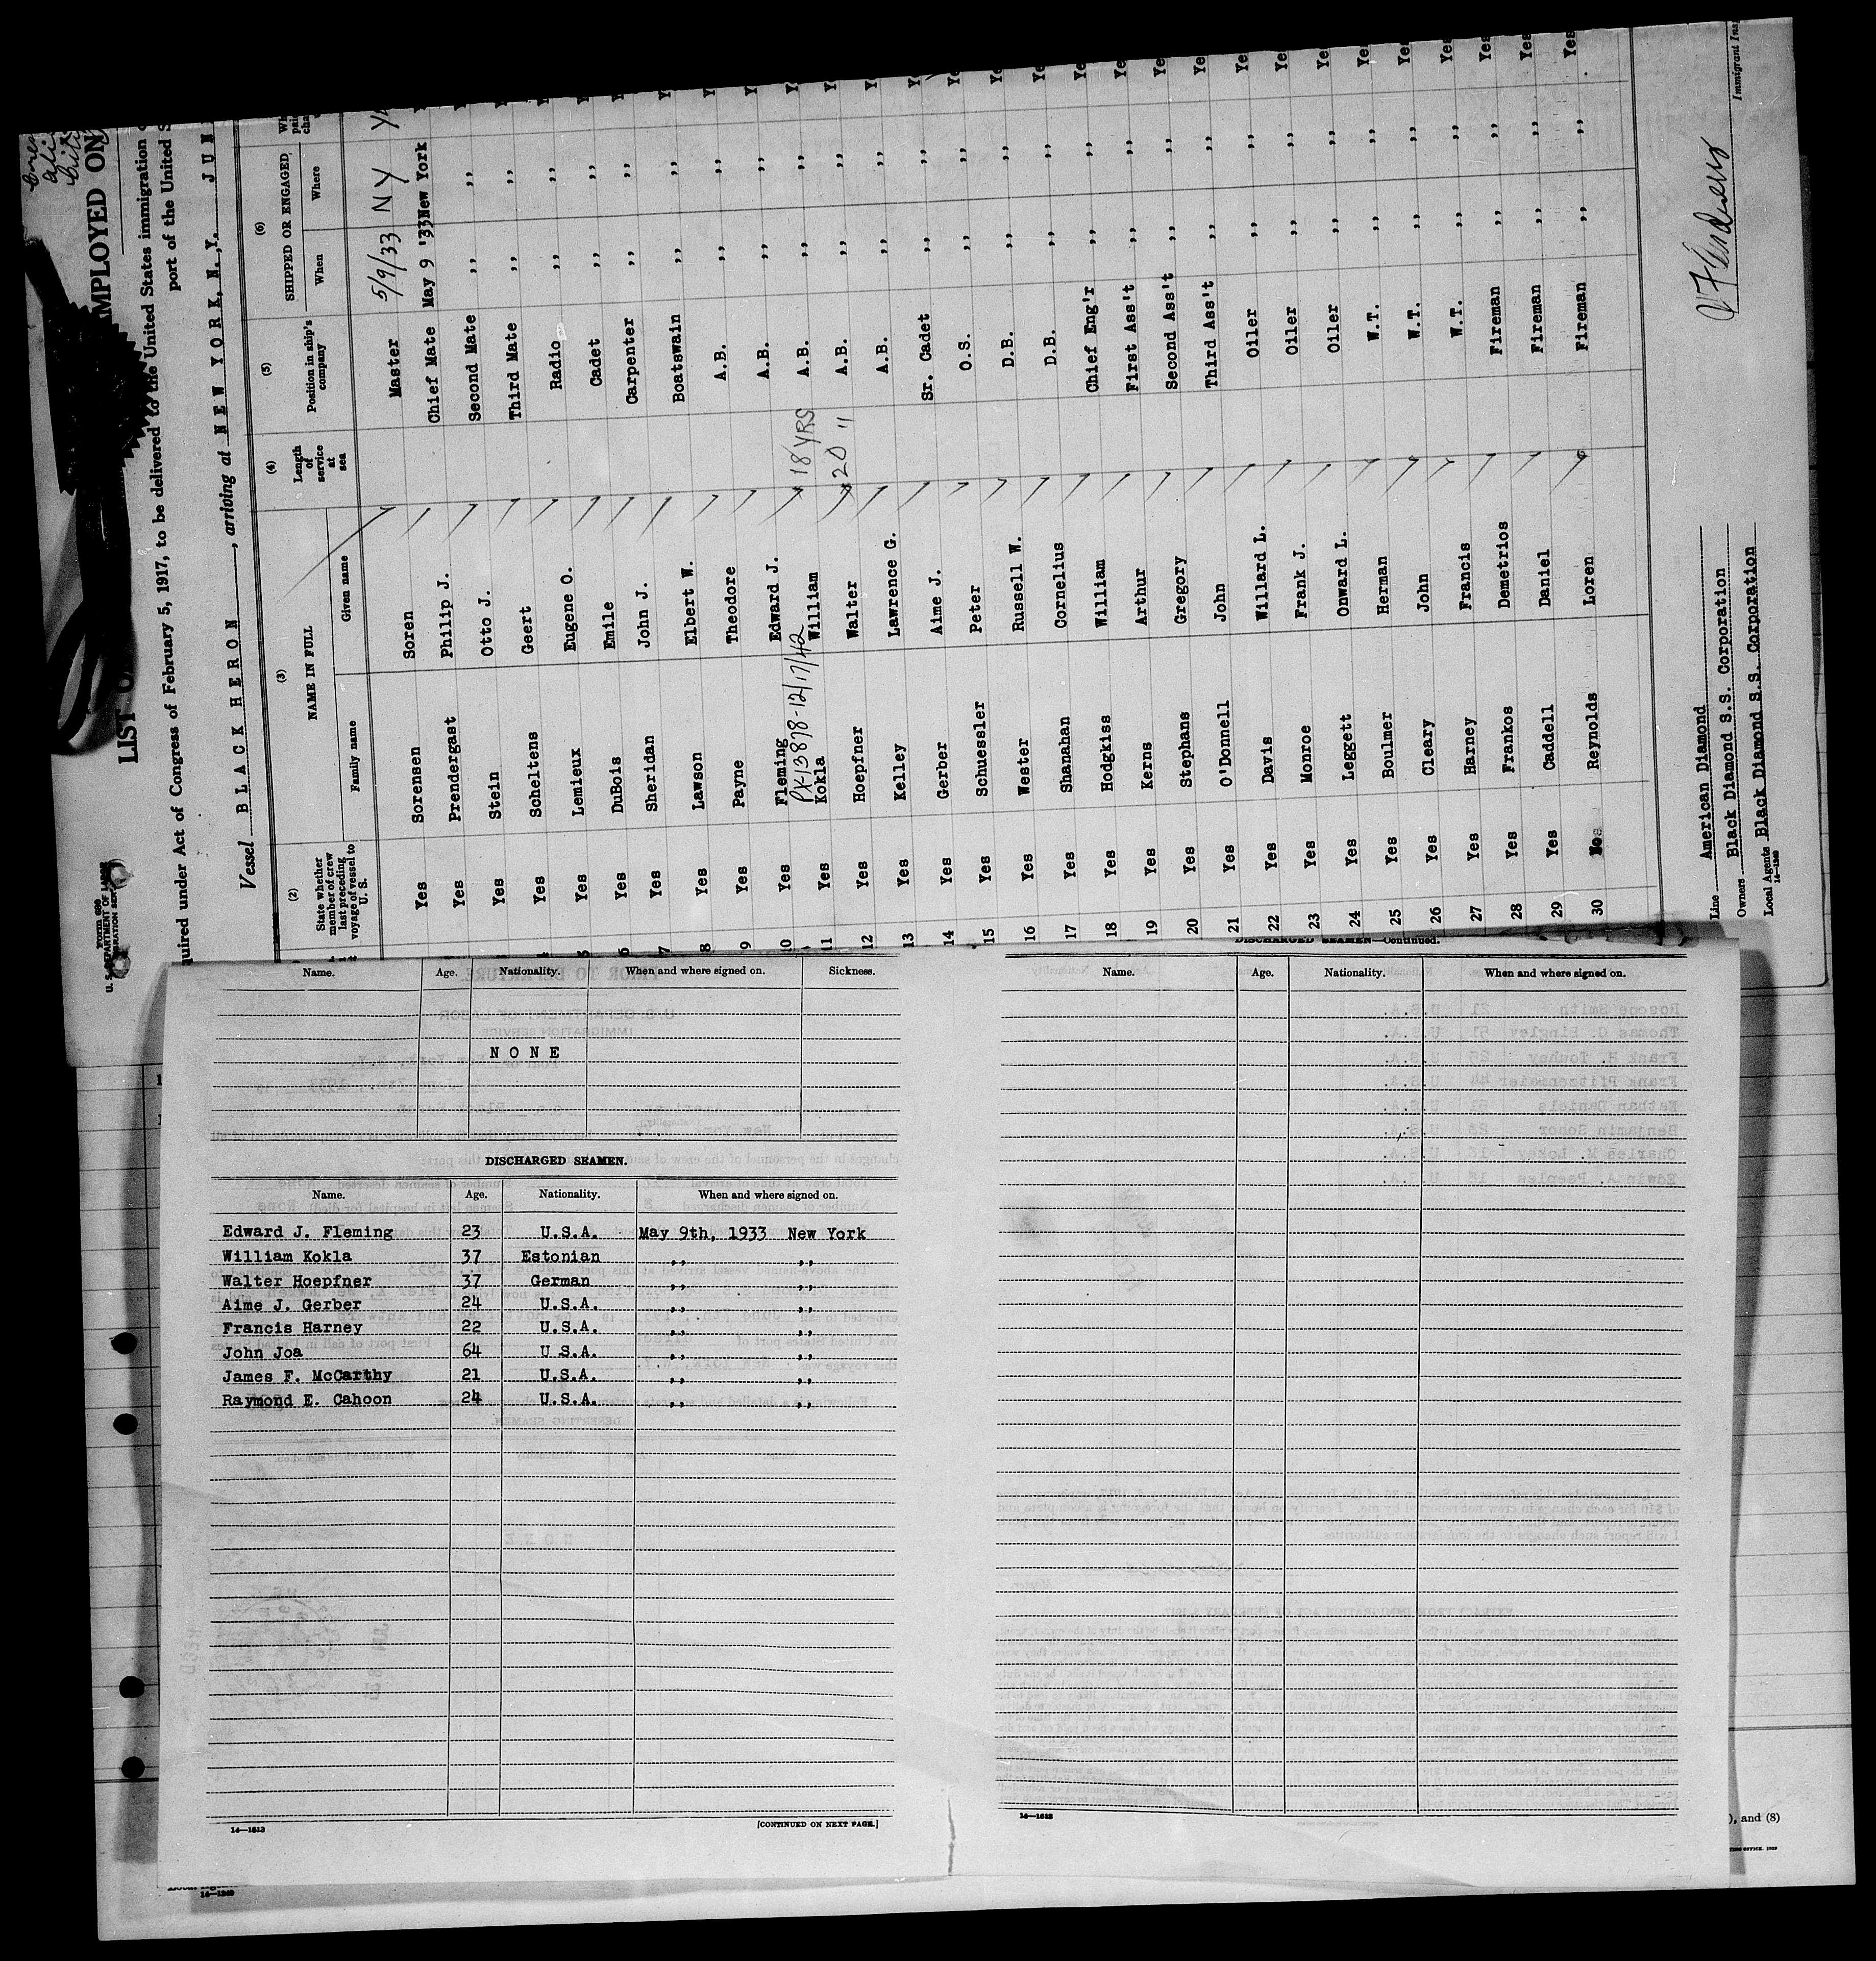 Form 689
U. S. DEPARTMENT OF LABOR
IMMIGRATION SERVICE
EMPLOYED ON
LIST O
quired under Act of Congress of February 5, 1917, to be delivered to the United States immigration
port of the United S
Vessel BLACK HERON, arriving at NEW YORK, N.Y. JUN
(2) (3) (4) (5) (6)
State whether member of crew last preceding voyage of vessel to U. S. NAME IN FULL Length of service at sea Position in ship's company SHIPPED OR ENGAGED
Family name Given name When Where
Yes Sorensen Soren Master 5/9/33 N Y
Yes Prendergast Philip J. Chief Mate May 9 '33 New York
Yes Stein Otto J. Second Mate ,, ,,
Yes Scheltens Geert Third Mate ,, ,,
5 Yes Lemieux Eugene O. Radio ,, ,,
6 Yes DuBois Emile Cadet ,, ,,
7 Yes Sheridan John J. Carpenter ,, ,,
8 Yes Lawson Elbert W. Boatswain ,, ,,
9 Yes Payne Theodore A.B. ,, ,,
10 Yes Fleming Edward J. A.B. ,, ,,
PX13898-12/17/42
11 Yes Kokla William 18 YRS A.B. ,, ,,
12 Yes Hoepfner Walter 20 " A.B. ,, ,,
13 Yes Kelley Lawrence G. A.B. ,, ,,
14 Yes Gerber Aime J. Sr. Cadet ,, ,,
15 Yes Schuessler Peter O.S. ,, ,,
16 Yes Wester Russell W. D.B. ,, ,,
17 Yes Shanahan Cornelius D.B. ,, ,,
18 Yes Hodgkiss William Chief Eng'r ,, ,,
19 Yes Kerns Arthur First Ass't ,, ,,
20 Yes Stephans Gregory Second Ass't ,, ,,
21 Yes O'Donnell John Third Ass't ,, ,,
22 Yes Davis Willard L. Oiler ,, ,,
23 Yes Monroe Frank J. Oiler ,, ,,
24 Yes Leggett Onward L. Oiler ,, ,,
25 Yes Boulmer Herman W.T. ,, ,,
26 Yes Cleary John W.T. ,, ,,
27 Yes Harney Francis W.T. ,, ,,
28 Yes Frankos Demetrios Fireman ,, ,,
29 Yes Caddell Daniel Fireman ,, ,,
30 Reynolds Loren Fireman ,, ,,
Line American Diamond
Owners Black Diamond S.S. Corporation
Local Agents Black Diamond S.S. Corporation
14—1240
Immigrant Ins
Name. Age. Nationality. When and where signed on. Sickness.
NONE
DISCHARGED SEAMEN.
Name. Age. Nationality. When and where signed on.
Edward J. Fleming 23 U.S.A. May 9th, 1933 New York
William Kokla 37 Estonian ,, ,,
Walter Hoepfner 37 German ,, ,,
Aime J. Gerber 24 U.S.A. ,, ,,
Francis Harney 22 U.S.A. ,, ,,
John Joa 64 U S.A. ,, ,,
James F. McCarthy 21 U.S.A. ,, ,,
Raymond E. Cahoon 24 U.S.A. ,, ,,
14—1613
[CONTINUED ON NEXT PAGE.]
DISCHARGED SEAMEN—Continued.
Name. Age. Nationality. When and where signed on.
14—1613
), and (8)
14—1240